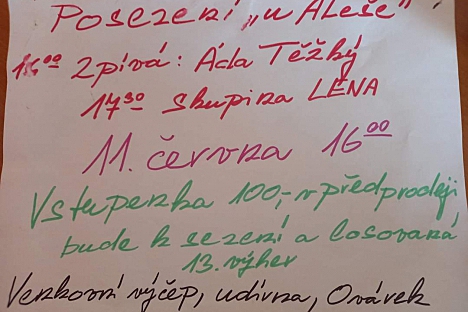 Posezení „u Aleše“
16⁰⁰ Zpívá: Áda Těžký
17³⁰ skupina LENA
11. června 16⁰⁰
Vstupenka 100,- v předprodeji
bude k sezení a losovaná
13. výher
Venkovní výčep, udírna, Ovárek